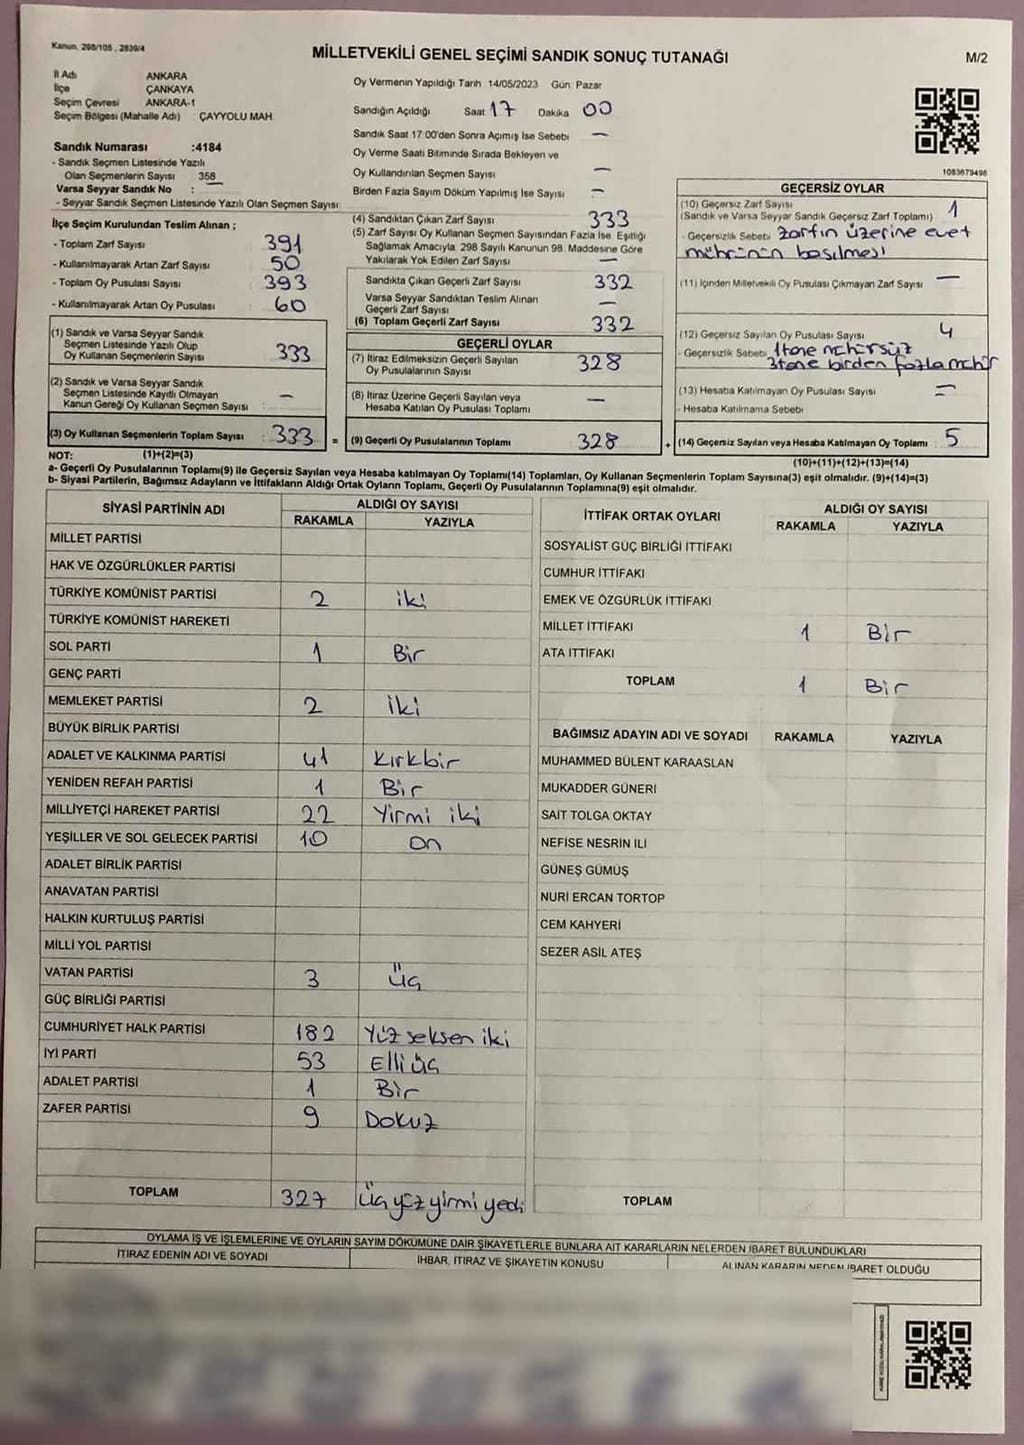 Kanun, 298/105 , 2839/4
MİLLETVEKİLİ GENEL SEÇİMİ SANDIK SONUÇ TUTANAĞI
M/2
İl Adı ANKARA
İlçe ÇANKAYA
Seçim Çevresi ANKARA-1
Seçim Bölgesi (Mahalle Adı) ÇAYYOLU MAH.
Sandık Numarası :4184
- Sandık Seçmen Listesinde Yazılı
Olan Seçmenlerin Sayısı 358
Varsa Seyyar Sandık No : —
- Seyyar Sandık Seçmen Listesinde Yazılı Olan Seçmen Sayısı
İlçe Seçim Kurulundan Teslim Alınan ;
- Toplam Zarf Sayısı 391
- Kullanılmayarak Artan Zarf Sayısı 50
- Toplam Oy Pusulası Sayısı 393
- Kullanılmayarak Artan Oy Pusulası 60
(1) Sandık ve Varsa Seyyar Sandık
Seçmen Listesinde Yazılı Olup
Oy Kullanan Seçmenlerin Sayısı 333
(2) Sandık ve Varsa Seyyar Sandık
Seçmen Listesinde Kayıtlı Olmayan
Kanun Gereği Oy Kullanan Seçmen Sayısı —
(3) Oy Kullanan Seçmenlerin Toplam Sayısı 333
Oy Vermenin Yapıldığı Tarih 14/05/2023 Gün Pazar
Sandığın Açıldığı Saat 17 Dakika 00
Sandık Saat 17:00'den Sonra Açımış İse Sebebi —
Oy Verme Saati Bitiminde Sırada Bekleyen ve
Oy Kullandırılan Seçmen Sayısı —
Birden Fazla Sayım Döküm Yapılmış İse Sayısı —
(4) Sandıktan Çıkan Zarf Sayısı 333
(5) Zarf Sayısı Oy Kullanan Seçmen Sayısından Fazla İse, Eşitliği
Sağlamak Amacıyla, 298 Sayılı Kanunun 98. Maddesine Göre
Yakılarak Yok Edilen Zarf Sayısı —
Sandıkta Çıkan Geçerli Zarf Sayısı 332
Varsa Seyyar Sandıktan Teslim Alınan
Geçerli Zarf Sayısı —
(6) Toplam Geçerli Zarf Sayısı 332
GEÇERLİ OYLAR
(7) İtiraz Edilmeksizin Geçerli Sayılan
Oy Pusulalarının Sayısı 328
(8) İtiraz Üzerine Geçerli Sayılan veya
Hesaba Katılan Oy Pusulası Toplamı —
= (9) Geçerli Oy Pusulalarının Toplamı 328
1083679498
GEÇERSİZ OYLAR
(10) Geçersiz Zarf Sayısı
(Sandık ve Varsa Seyyar Sandık Geçersiz Zarf Toplamı) 1
- Geçersizlik Sebebi Zarfın üzerine evet
mührünün basılması
(11) İçinden Milletvekili Oy Pusulası Çıkmayan Zarf Sayısı —
(12) Geçersiz Sayılan Oy Pusulası Sayısı 4
- Geçersizlik Sebebi 1tane mühürsüz
3tane birden fazla mühür
(13) Hesaba Katılmayan Oy Pusulası Sayısı —
- Hesaba Katılmama Sebebi —
+ (14) Geçersiz Sayılan veya Hesaba Katılmayan Oy Toplamı 5
NOT: (1)+(2)=(3)
(10)+(11)+(12)+(13)=(14)
a- Geçerli Oy Pusulalarının Toplamı(9) ile Geçersiz Sayılan veya Hesaba katılmayan Oy Toplamı(14) Toplamları, Oy Kullanan Seçmenlerin Toplam Sayısına(3) eşit olmalıdır. (9)+(14)=(3)
b- Siyasi Partilerin, Bağımsız Adayların ve İttifakların Aldığı Ortak Oyların Toplamı, Geçerli Oy Pusulalarının Toplamına(9) eşit olmalıdır.
SİYASİ PARTİNİN ADI ALDIĞI OY SAYISI
RAKAMLA YAZIYLA
MİLLET PARTİSİ
HAK VE ÖZGÜRLÜKLER PARTİSİ
TÜRKİYE KOMÜNİST PARTİSİ 2 iki
TÜRKİYE KOMÜNİST HAREKETİ
SOL PARTİ 1 Bir
GENÇ PARTİ
MEMLEKET PARTİSİ 2 iki
BÜYÜK BİRLİK PARTİSİ
ADALET VE KALKINMA PARTİSİ 41 Kırkbir
YENİDEN REFAH PARTİSİ 1 Bir
MİLLİYETÇİ HAREKET PARTİSİ 22 Yirmi iki
YEŞİLLER VE SOL GELECEK PARTİSİ 10 On
ADALET BİRLİK PARTİSİ
ANAVATAN PARTİSİ
HALKIN KURTULUŞ PARTİSİ
MİLLİ YOL PARTİSİ
VATAN PARTİSİ 3 üç
GÜÇ BİRLİĞİ PARTİSİ
CUMHURİYET HALK PARTİSİ 182 Yüz seksen iki
İYİ PARTİ 53 Elli üç
ADALET PARTİSİ 1 Bir
ZAFER PARTİSİ 9 Dokuz
TOPLAM 327 üç yüz yirmi yedi
İTTİFAK ORTAK OYLARI ALDIĞI OY SAYISI
RAKAMLA YAZIYLA
SOSYALİST GÜÇ BİRLİĞİ İTTİFAKI
CUMHUR İTTİFAKI
EMEK VE ÖZGÜRLÜK İTTİFAKI
MİLLET İTTİFAKI 1 Bir
ATA İTTİFAKI
TOPLAM 1 Bir
BAĞIMSIZ ADAYIN ADI VE SOYADI RAKAMLA YAZIYLA
MUHAMMED BÜLENT KARAASLAN
MUKADDER GÜNERİ
SAİT TOLGA OKTAY
NEFİSE NESRİN İLİ
GÜNEŞ GÜMÜŞ
NURİ ERCAN TORTOP
CEM KAHYERİ
SEZER ASİL ATEŞ
TOPLAM
OYLAMA İŞ VE İŞLEMLERİNE VE OYLARIN SAYIM DÖKÜMÜNE DAİR ŞİKAYETLERLE BUNLARA AİT KARARLARIN NELERDEN İBARET BULUNDUKLARI
İTİRAZ EDENİN ADI VE SOYADI İHBAR, İTİRAZ VE ŞİKAYETİN KONUSU ALINAN KARARIN NEDEN İBARET OLDUĞU